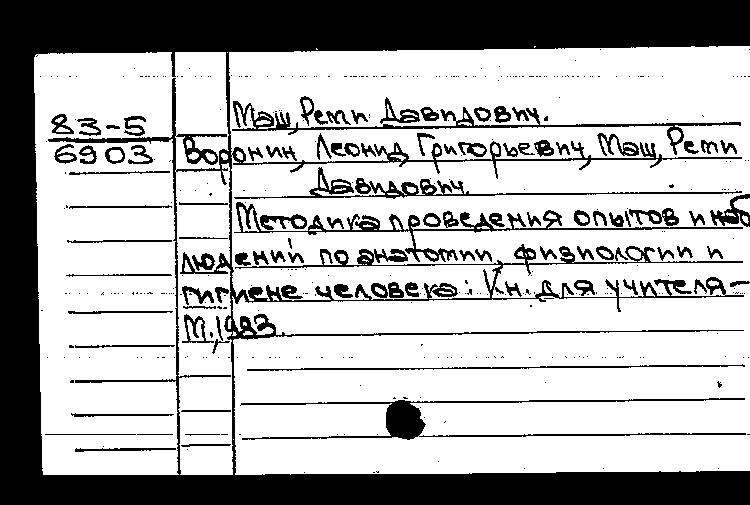 Маш, Реми Давидович.
83-5
6903
Воронин, Леонид Григорьевич, Маш, Реми
Давидович.
Методика проведения опытов и наб
людений по анатомии, физиологии и
гигиене человека: Кн. для учителя-
М., 1983.